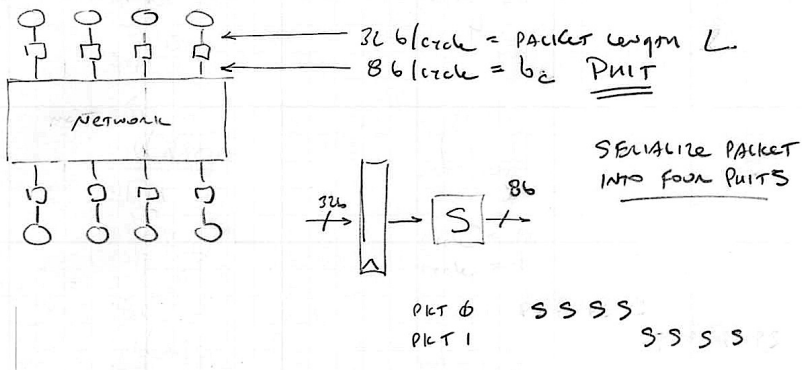 32 b/cycle = PACKET length L
8 b/cycle = bc PHIT
NETWORK
SERIALIZE PACKET
INTO FOUR PHITS
32b
8b
S
PKT 0 S S S S
PKT 1 S S S S